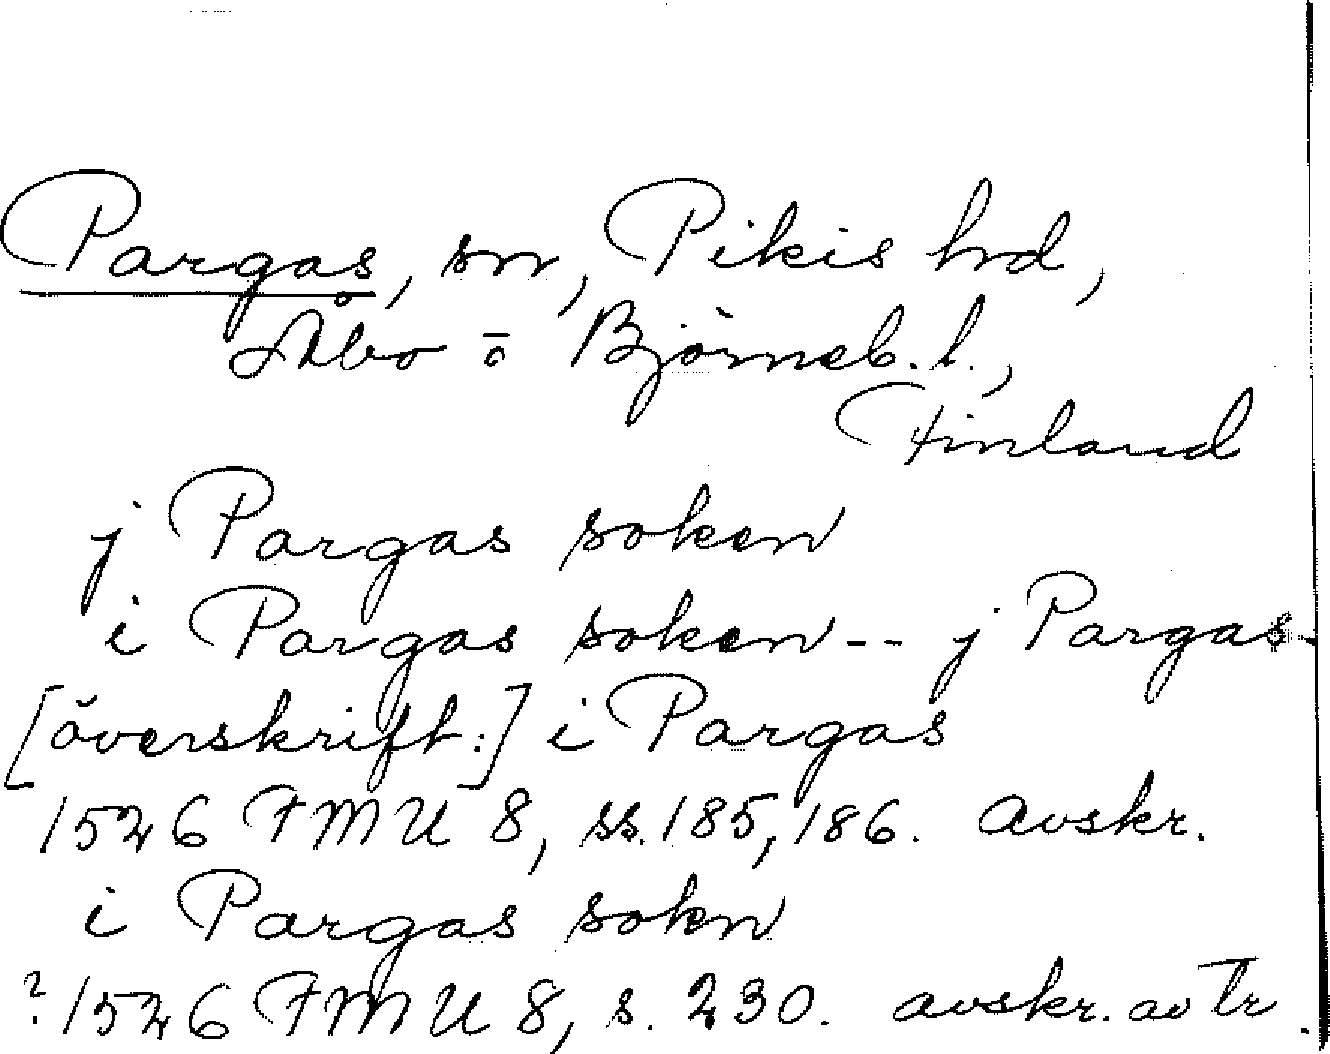 Pargas, sn, Pikis hrd,
Åbo o Björneb. l.,
Finland
j Pargas soken
i Pargas soken -- j Pargas
[överskrift:] i Pargas
1526 FMU 8, ss. 185, 186. avskr.
i Pargas sokn
? 1526 FMU 8, s. 230. avskr. av Tr.